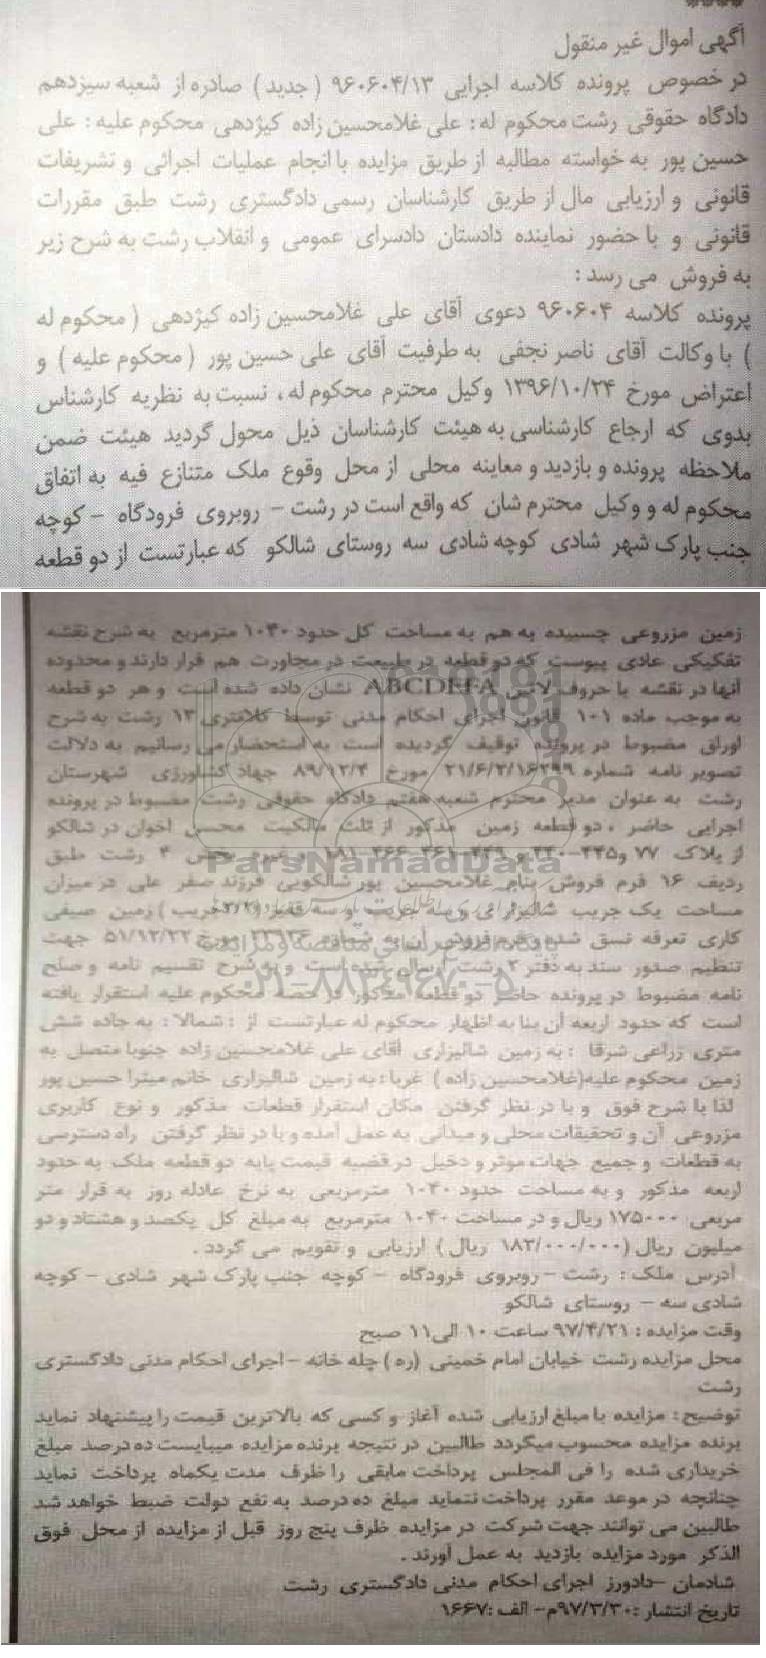 ****
آگهی اموال غیر منقول
در خصوص پرونده کلاسه اجرایی ۹۶۰۶۰۴/۱۳ (جدید) صادره از شعبه سیزدهم
دادگاه حقوقی رشت محکوم له: علی غلامحسین زاده کیژدهی محکوم علیه: علی
حسین پور به خواسته مطالبه از طریق مزایده با انجام عملیات اجرائی و تشریفات
قانونی و ارزیابی مال از طریق کارشناسان رسمی دادگستری رشت طبق مقررات
قانونی و با حضور نماینده دادستان دادسرای عمومی و انقلاب رشت به شرح زیر
به فروش می رسد:
پرونده کلاسه ۹۶۰۶۰۴ دعوی آقای علی غلامحسین زاده کیژدهی (محکوم له
) با وکالت آقای ناصر نجفی به طرفیت آقای علی حسین پور (محکوم علیه) و
اعتراض مورخ ۱۳۹۶/۱۰/۲۴ وکیل محترم محکوم له، نسبت به نظریه کارشناس
بدوی که ارجاع کارشناسی به هیئت کارشناسان ذیل محول گردید هیئت ضمن
ملاحظه پرونده و بازدید و معاینه محلی از محل وقوع ملک متنازع فیه به اتفاق
محکوم له و وکیل محترم شان که واقع است در رشت - روبروی فرودگاه - کوچه
جنب پارک شهر شادی کوچه شادی سه روستای شالکو که عبارتست از دو قطعه
زمین مزروعی چسبیده به هم به مساحت کل حدود ۱۰۴۰ مترمربع به شرح نقشه
تفکیکی عادی پیوست که دو قطعه در طبیعت در مجاورت هم قرار دارند و محدوده
آنها در نقشه با حروف لاتین ABCDEFA نشان داده شده است و هر دو قطعه
به موجب ماده ۱۰۱ قانون اجرای احکام مدنی توسط کلانتری ۱۳ رشت به شرح
اوراق مضبوط در پرونده توقیف گردیده است به استحضار می رسانیم به دلالت
تصویر نامه شماره ۲۱/۶/۲/۱۶۲۹۹ مورخ ۸۹/۱۲/۴ جهاد کشاورزی شهرستان
رشت به عنوان مدیر محترم شعبه هفتم دادگاه حقوقی رشت مضبوط در پرونده
اجرایی حاضر، دو قطعه زمین مذکور از ثلث مالکیت محسن اخوان در شالکو
از پلاک ۷۷ و ۴ رشت طبق
ردیف ۱۶ فرم فروش بنام غلامحسین پور شالکویی فرزند صفر علی در میزان
مساحت یک جریب شالیزاری و سه جریب و سه قفیز زمین صیفی
کاری تعرفه نسق شده و فرم فروش آن به شماره مورخ ۵۱/۱۲/۲۲ جهت
تنظیم صدور سند به دفتر ۲ رشت ارسال شده است و به شرح تقسیم نامه و صلح
نامه مضبوط در پرونده حاضر دو قطعه مذکور در حصه محکوم علیه استقرار یافته
است که حدود اربعه آن بنا به اظهار محکوم له عبارتست از: شمالا: به جاده شش
متری زراعی شرقا: به زمین شالیزاری آقای علی غلامحسین زاده جنوبا متصل به
زمین محکوم علیه(غلامحسین زاده) غربا: به زمین شالیزاری خانم میترا حسین پور
لذا با شرح فوق و با در نظر گرفتن مکان استقرار قطعات مذکور و نوع کاربری
مزروعی آن و تحقیقات محلی و میدانی به عمل آمده و با در نظر گرفتن راه دسترسی
به قطعات و جمیع جهات موثر و دخیل در قضیه قیمت پایه دو قطعه ملک به حدود
اربعه مذکور و به مساحت حدود ۱۰۴۰ مترمربعی به نرخ عادله روز به قرار متر
مربعی ۱۷۵۰۰۰ ریال و در مساحت ۱۰۴۰ مترمربع به مبلغ کل یکصد و هشتاد و دو
میلیون ریال (۱۸۲/۰۰۰/۰۰۰ ریال) ارزیابی و تقویم می گردد.
آدرس ملک: رشت - روبروی فرودگاه - کوچه جنب پارک شهر شادی - کوچه
شادی سه - روستای شالکو
وقت مزایده: ۹۷/۴/۲۱ ساعت ۱۰ الی ۱۱ صبح
محل مزایده رشت خیابان امام خمینی (ره) چله خانه - اجرای احکام مدنی دادگستری
رشت
توضیح: مزایده با مبلغ ارزیابی شده آغاز و کسی که بالاترین قیمت را پیشنهاد نماید
برنده مزایده محسوب میگردد طالبین در نتیجه برنده مزایده میبایست ده درصد مبلغ
خریداری شده را فی المجلس پرداخت مابقی را ظرف مدت یکماه پرداخت نماید
چنانچه در موعد مقرر پرداخت ننماید مبلغ ده درصد به نفع دولت ضبط خواهد شد
طالبین می توانند جهت شرکت در مزایده ظرف پنج روز قبل از مزایده از محل فوق
الذکر مورد مزایده بازدید به عمل آورند.
شادمان - دادورز اجرای احکام مدنی دادگستری رشت
تاریخ انتشار: ۹۷/۳/۳۰م- الف: ۱۶۶۷
ParsNamadData
۰۲۱-۸۸۳۴۹۶۷۰-۵